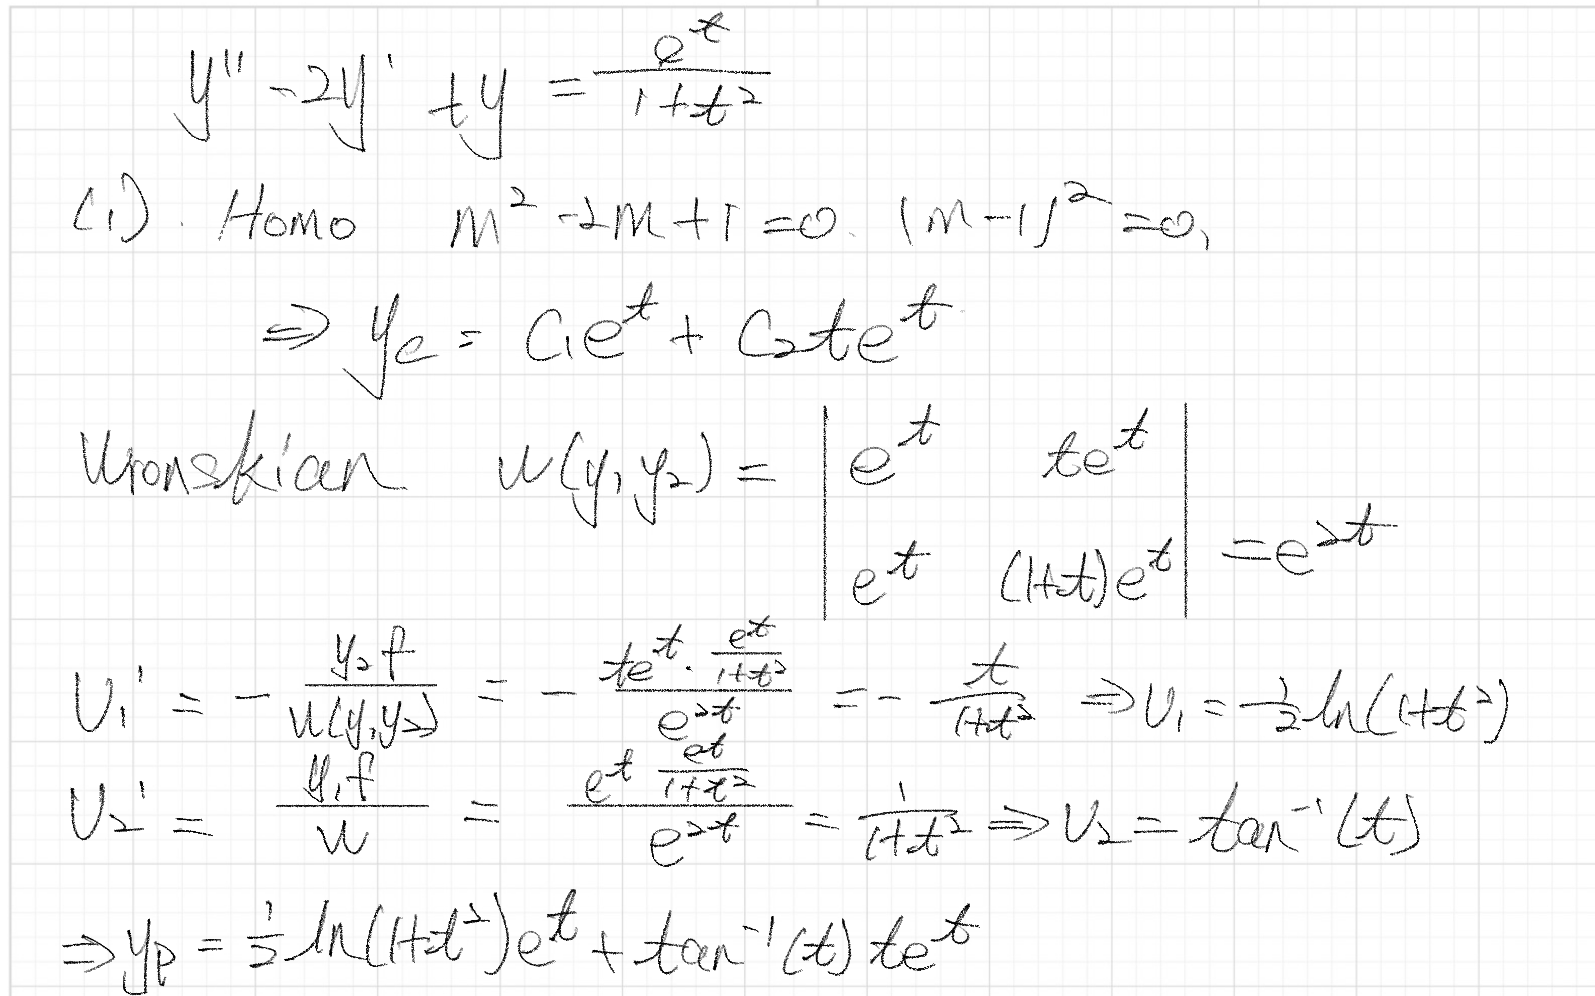 y'' - 2y' + y = e^t / (1+t^2)
(i). Homo m^2 - 2m + 1 = 0. (m-1)^2 = 0,
⇒ y_c = C_1e^t + C_2te^t
Wronskian W(y_1 y_2) = | e^t te^t ; e^t (1+t)e^t | = e^{2t}
U_1' = - y_2 f / W(y_1 y_2) = - (te^t · e^t/(1+t^2)) / e^{2t} = - t/(1+t^2) ⇒ U_1 = -1/2 ln(1+t^2)
U_2' = y_1 f / W = (e^t e^t/(1+t^2)) / e^{2t} = 1/(1+t^2) ⇒ U_2 = tan^{-1}(t)
⇒ y_p = 1/2 ln(1+t^2)e^t + tan^{-1}(t) te^t